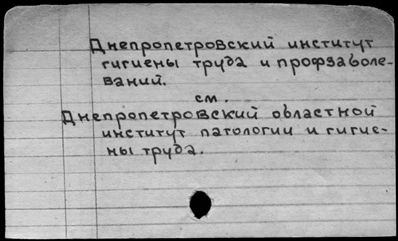 Днепропетровский институт
гигиены труда и профзаболе-
ваний.
см.
Днепропетровский областной
институт патологии и гигие-
ны труда.